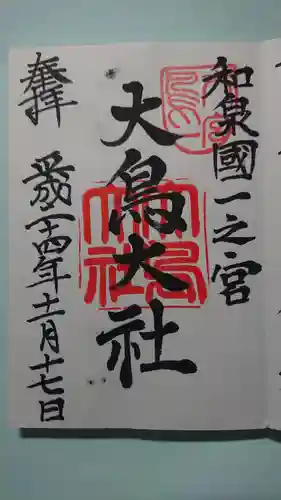 和泉國一之宮
大鳥大社
奉拝
平成二十四年十一月十七日